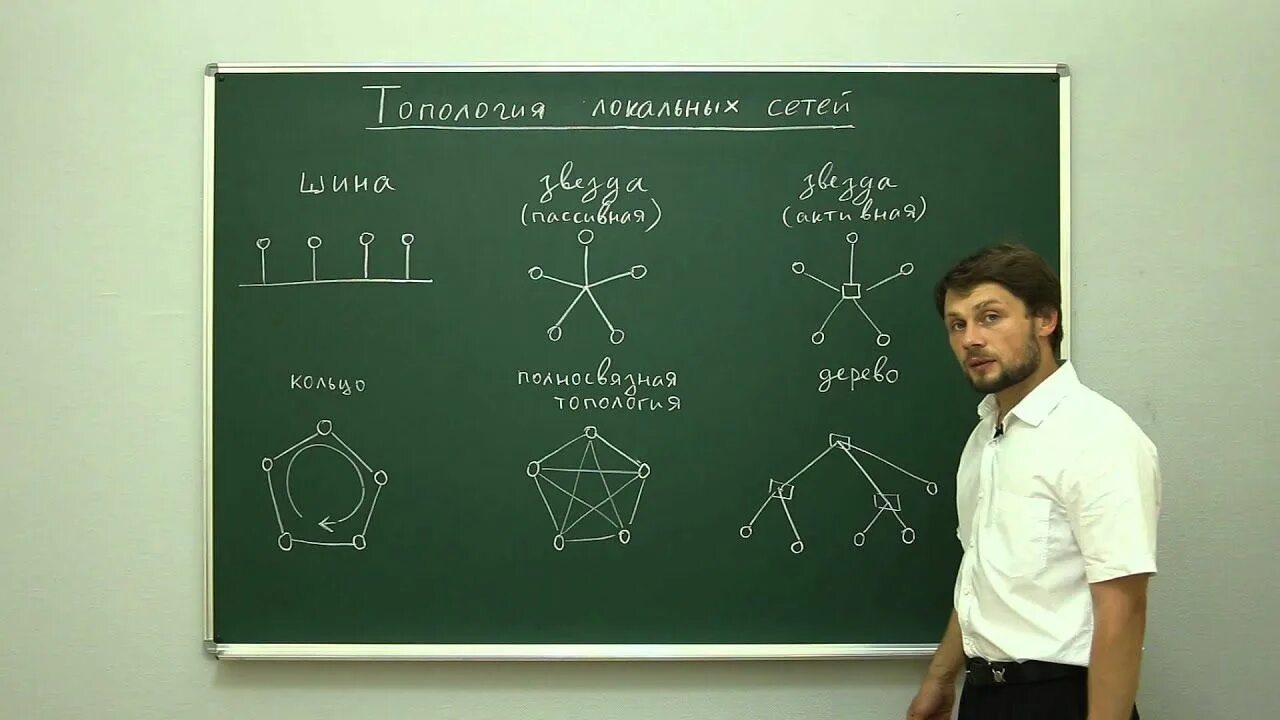 Топология локальных сетей
шина
звезда
(пассивная)
звезда
(активная)
кольцо
полносвязная
топология
дерево